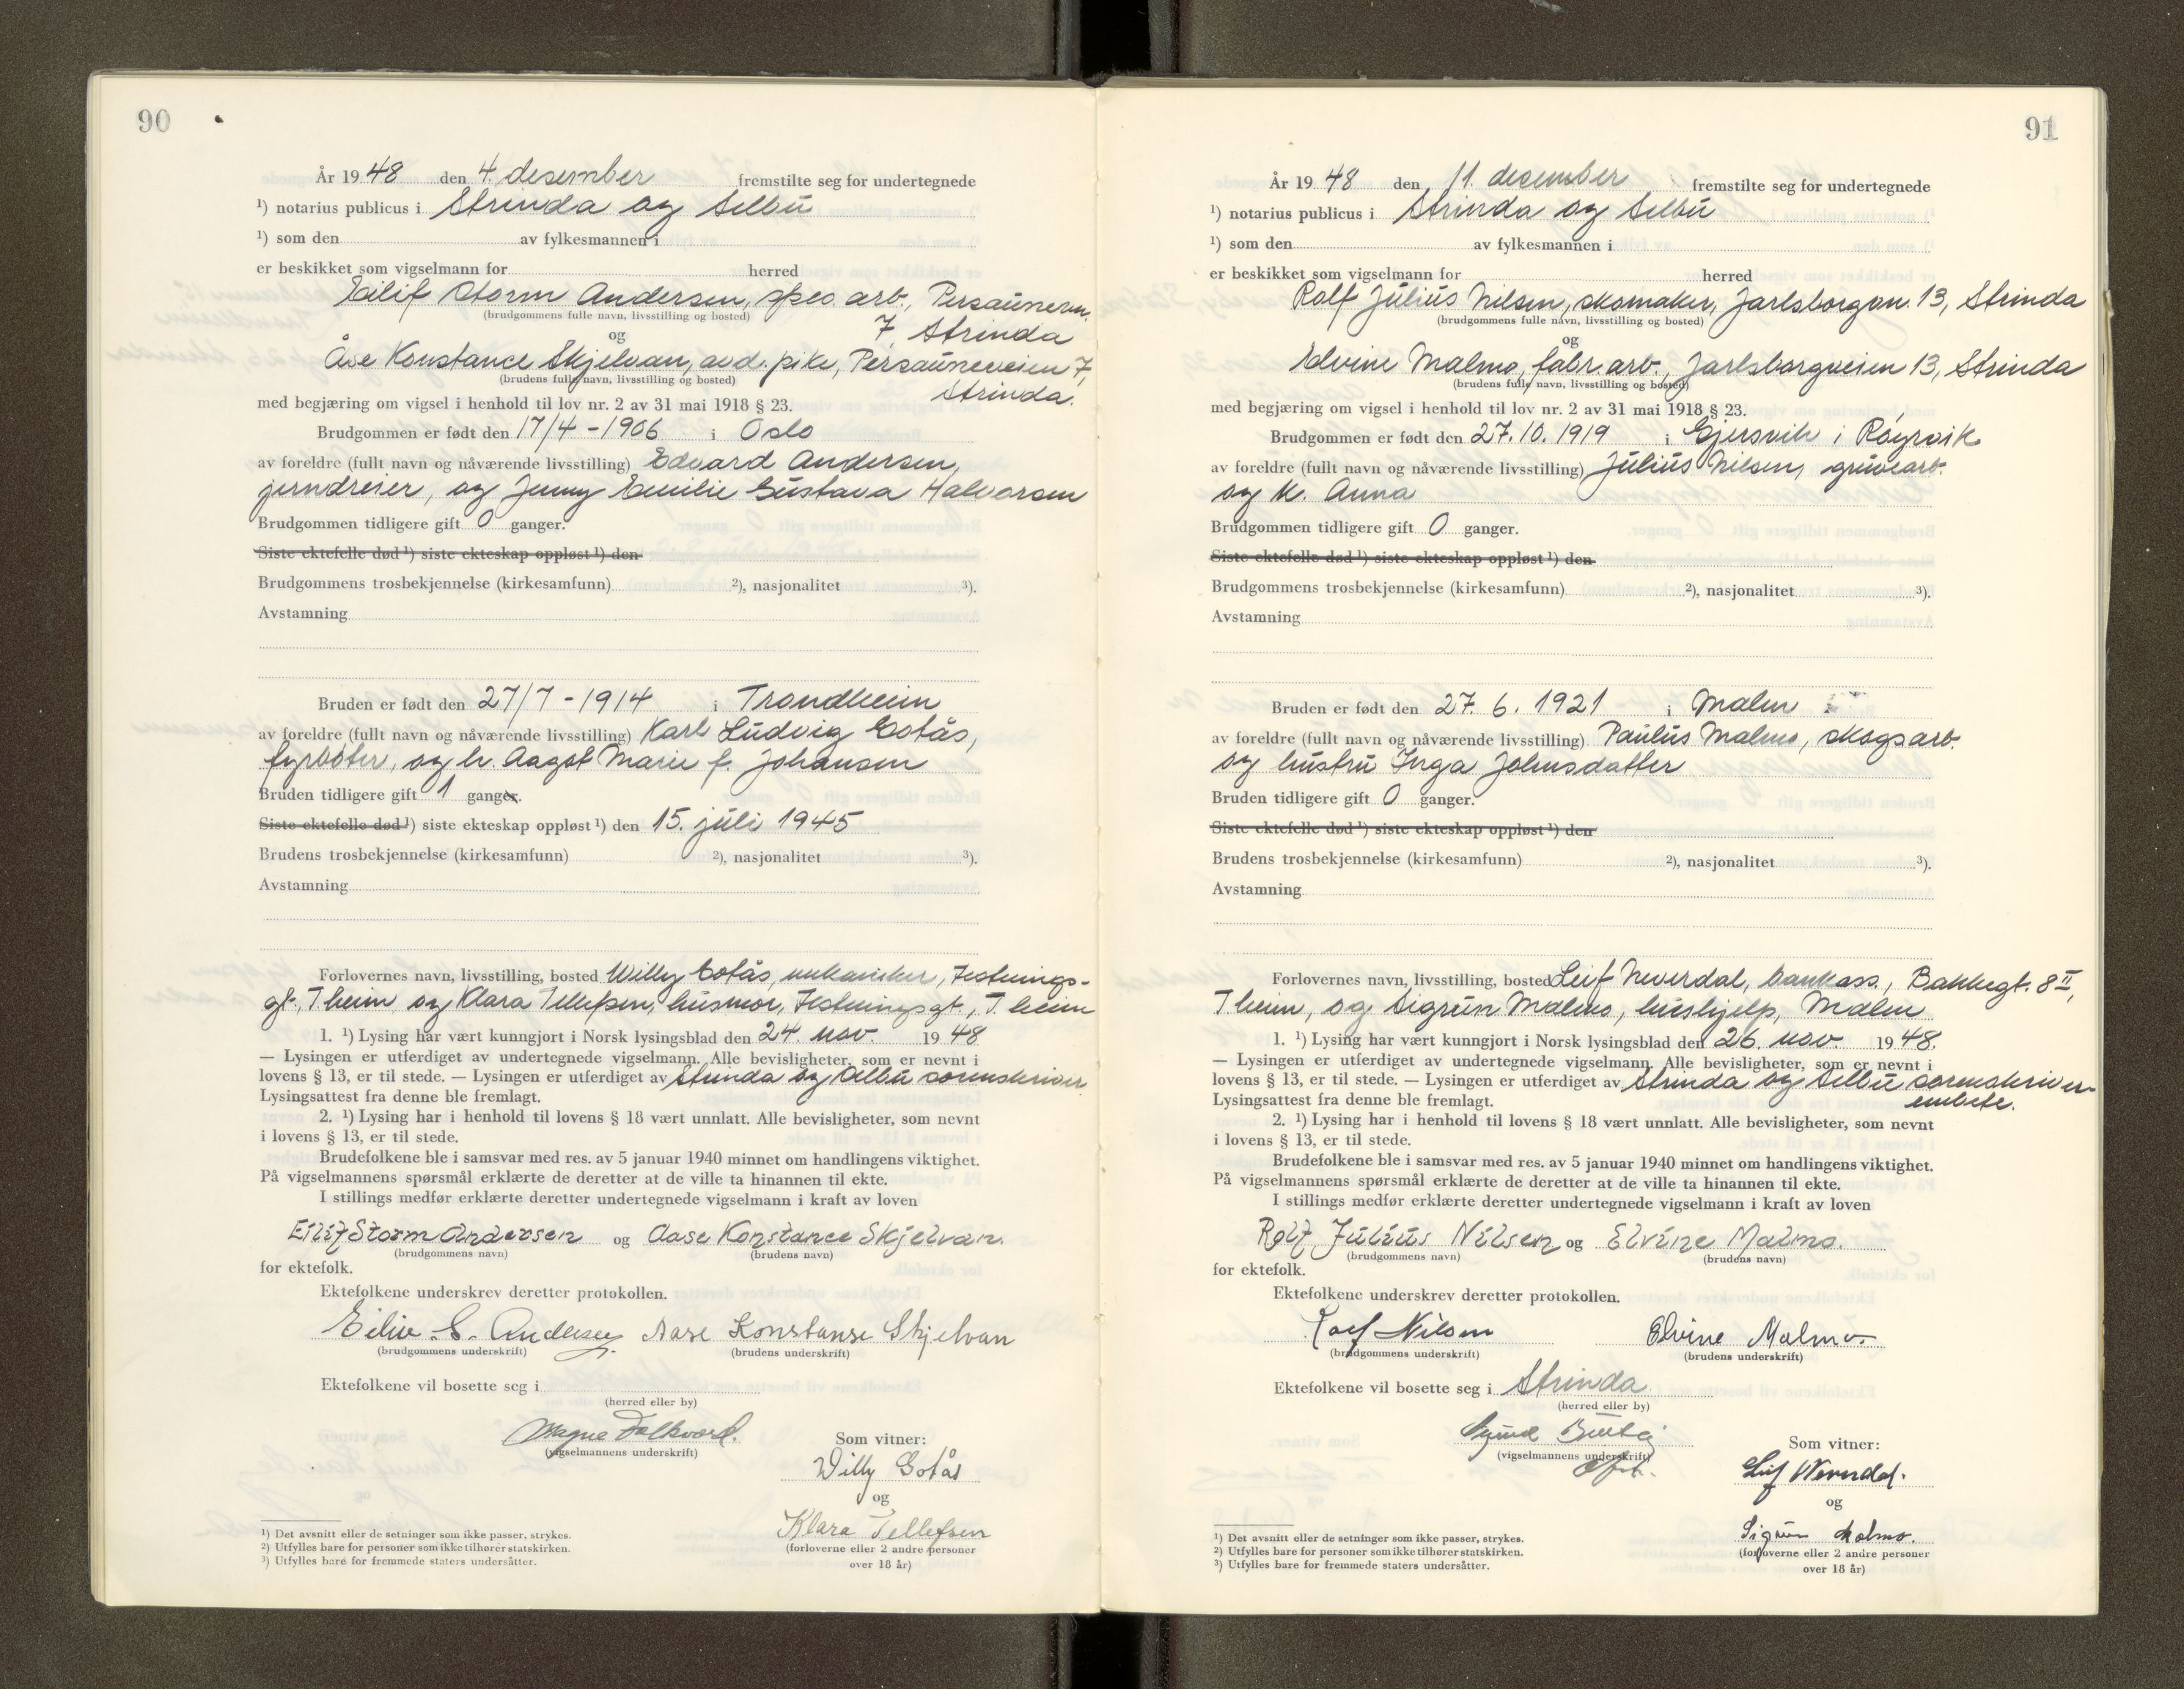 90
År 1948 den 4. desember fremstilte seg for undertegnede
¹) notarius publicus i Strinda og Selbu
¹) som den av fylkesmannen i
er beskikket som vigselmann for herred
Eilif Storm Andersen, spes. arb., Persauneevn.
(brudgommens fulle navn, livsstilling og bosted)
7, Strinda
og
Åse Konstance Skjelvan, avd. pike, Persauneveien 7,
(brudens fulle navn, livsstilling og bosted)
Strinda.
med begjæring om vigsel i henhold til lov nr. 2 av 31 mai 1918 § 23.
Brudgommen er født den 17/4 - 1906 i Oslo
av foreldre (fullt navn og nåværende livsstilling) Edvard Andersen,
jerndreier, og Jenny Emilie Gustava Halvorsen
Brudgommen tidligere gift 0 ganger.
Siste ektefelle død ¹) siste ekteskap oppløst ¹) den
Brudgommens trosbekjennelse (kirkesamfunn) ²), nasjonalitet ³).
Avstamning
Bruden er født den 27/7 - 1914 i Trondheim
av foreldre (fullt navn og nåværende livsstilling) Karl Ludvig Gotås,
fyrbøter, og h. Aagot Marie f. Johansen
Bruden tidligere gift 1 ganger.
Siste ektefelle død ¹) siste ekteskap oppløst ¹) den 15. juli 1945
Brudens trosbekjennelse (kirkesamfunn) ²), nasjonalitet ³).
Avstamning
Forlovernes navn, livsstilling, bosted Willy Gotås, mekaniker, Festnings-
gt., T.heim og Klara Tellefsen, husmor, Festningsgt., T.heim
1. ¹) Lysing har vært kunngjort i Norsk lysingsblad den 24. nov. 1948
— Lysingen er utferdiget av undertegnede vigselmann. Alle bevisligheter, som er nevnt i
lovens § 13, er til stede. — Lysingen er utferdiget av Strinda og Selbu sorenskriver
Lysingsattest fra denne ble fremlagt.
2. ¹) Lysing har i henhold til lovens § 18 vært unnlatt. Alle bevisligheter, som nevnt
i lovens § 13, er til stede.
Brudefolkene ble i samsvar med res. av 5 januar 1940 minnet om handlingens viktighet.
På vigselmannens spørsmål erklærte de deretter at de ville ta hinannen til ekte.
I stillings medfør erklærte deretter undertegnede vigselmann i kraft av loven
Eilif Storm Andersen og Aase Konstance Skjelvan.
(brudgommens navn) (brudens navn)
for ektefolk.
Ektefolkene underskrev deretter protokollen.
Eiliv S. Andersen Aase Konstanse Skjelvan
(brudgommens underskrift) (brudens underskrift)
Ektefolkene vil bosette seg i
(herred eller by)
Magne Falkvord.
(vigselmannens underskrift)
Som vitner:
Willy Gotås
og
Klara Tellefsen
(forloverne eller 2 andre personer
over 18 år)
¹) Det avsnitt eller de setninger som ikke passer, strykes.
²) Utfylles bare for personer som ikke tilhører statskirken.
³) Utfylles bare for fremmede staters undersåtter.
91
År 1948 den 11. december fremstilte seg for undertegnede
¹) notarius publicus i Strinda og Selbu
¹) som den av fylkesmannen i
er beskikket som vigselmann for herred
Rolf Julius Nilsen, skomaker, Jarlsborgvn. 13, Strinda
(brudgommens fulle navn, livsstilling og bosted)
og
Elvine Malmo, fabr.arb., Jarlsborgveien 13, Strinda
(brudens fulle navn, livsstilling og bosted)
med begjæring om vigsel i henhold til lov nr. 2 av 31 mai 1918 § 23.
Brudgommen er født den 27.10.1919 i Gjersvik i Røyrvik
av foreldre (fullt navn og nåværende livsstilling) Julius Nilsen, gruvearb.
og h. Anna
Brudgommen tidligere gift 0 ganger.
Siste ektefelle død ¹) siste ekteskap oppløst ¹) den
Brudgommens trosbekjennelse (kirkesamfunn) ²), nasjonalitet ³).
Avstamning
Bruden er født den 27. 6. 1921 i Malm
av foreldre (fullt navn og nåværende livsstilling) Paulus Malmo, skogsarb.
og hustru Inga Johnsdatter
Bruden tidligere gift 0 ganger.
Siste ektefelle død ¹) siste ekteskap oppløst ¹) den
Brudens trosbekjennelse (kirkesamfunn) ²), nasjonalitet ³).
Avstamning
Forlovernes navn, livsstilling, bosted Leif Neverdal, bankass., Bakkegt. 8 II,
T.heim, og Sigrun Malmo, hushjelp, Malm
1. ¹) Lysing har vært kunngjort i Norsk lysingsblad den 26. nov. 1948.
— Lysingen er utferdiget av undertegnede vigselmann. Alle bevisligheter, som er nevnt i
lovens § 13, er til stede. — Lysingen er utferdiget av Strinda og Selbu sorenskriver
embete.
Lysingsattest fra denne ble fremlagt.
2. ¹) Lysing har i henhold til lovens § 18 vært unnlatt. Alle bevisligheter, som nevnt
i lovens § 13, er til stede.
Brudefolkene ble i samsvar med res. av 5 januar 1940 minnet om handlingens viktighet.
På vigselmannens spørsmål erklærte de deretter at de ville ta hinannen til ekte.
I stillings medfør erklærte deretter undertegnede vigselmann i kraft av loven
Rolf Julius Nilsen og Elvine Malmo.
(brudgommens navn) (brudens navn)
for ektefolk.
Ektefolkene underskrev deretter protokollen.
Rolf Nilsen Elvine Malmo
(brudgommens underskrift) (brudens underskrift)
Ektefolkene vil bosette seg i Strinda
(herred eller by)
(vigselmannens underskrift)
Som vitner:
Leif Neverdal.
og
Sigrun Malmo.
(forloverne eller 2 andre personer
over 18 år)
¹) Det avsnitt eller de setninger som ikke passer, strykes.
²) Utfylles bare for personer som ikke tilhører statskirken.
³) Utfylles bare for fremmede staters undersåtter.